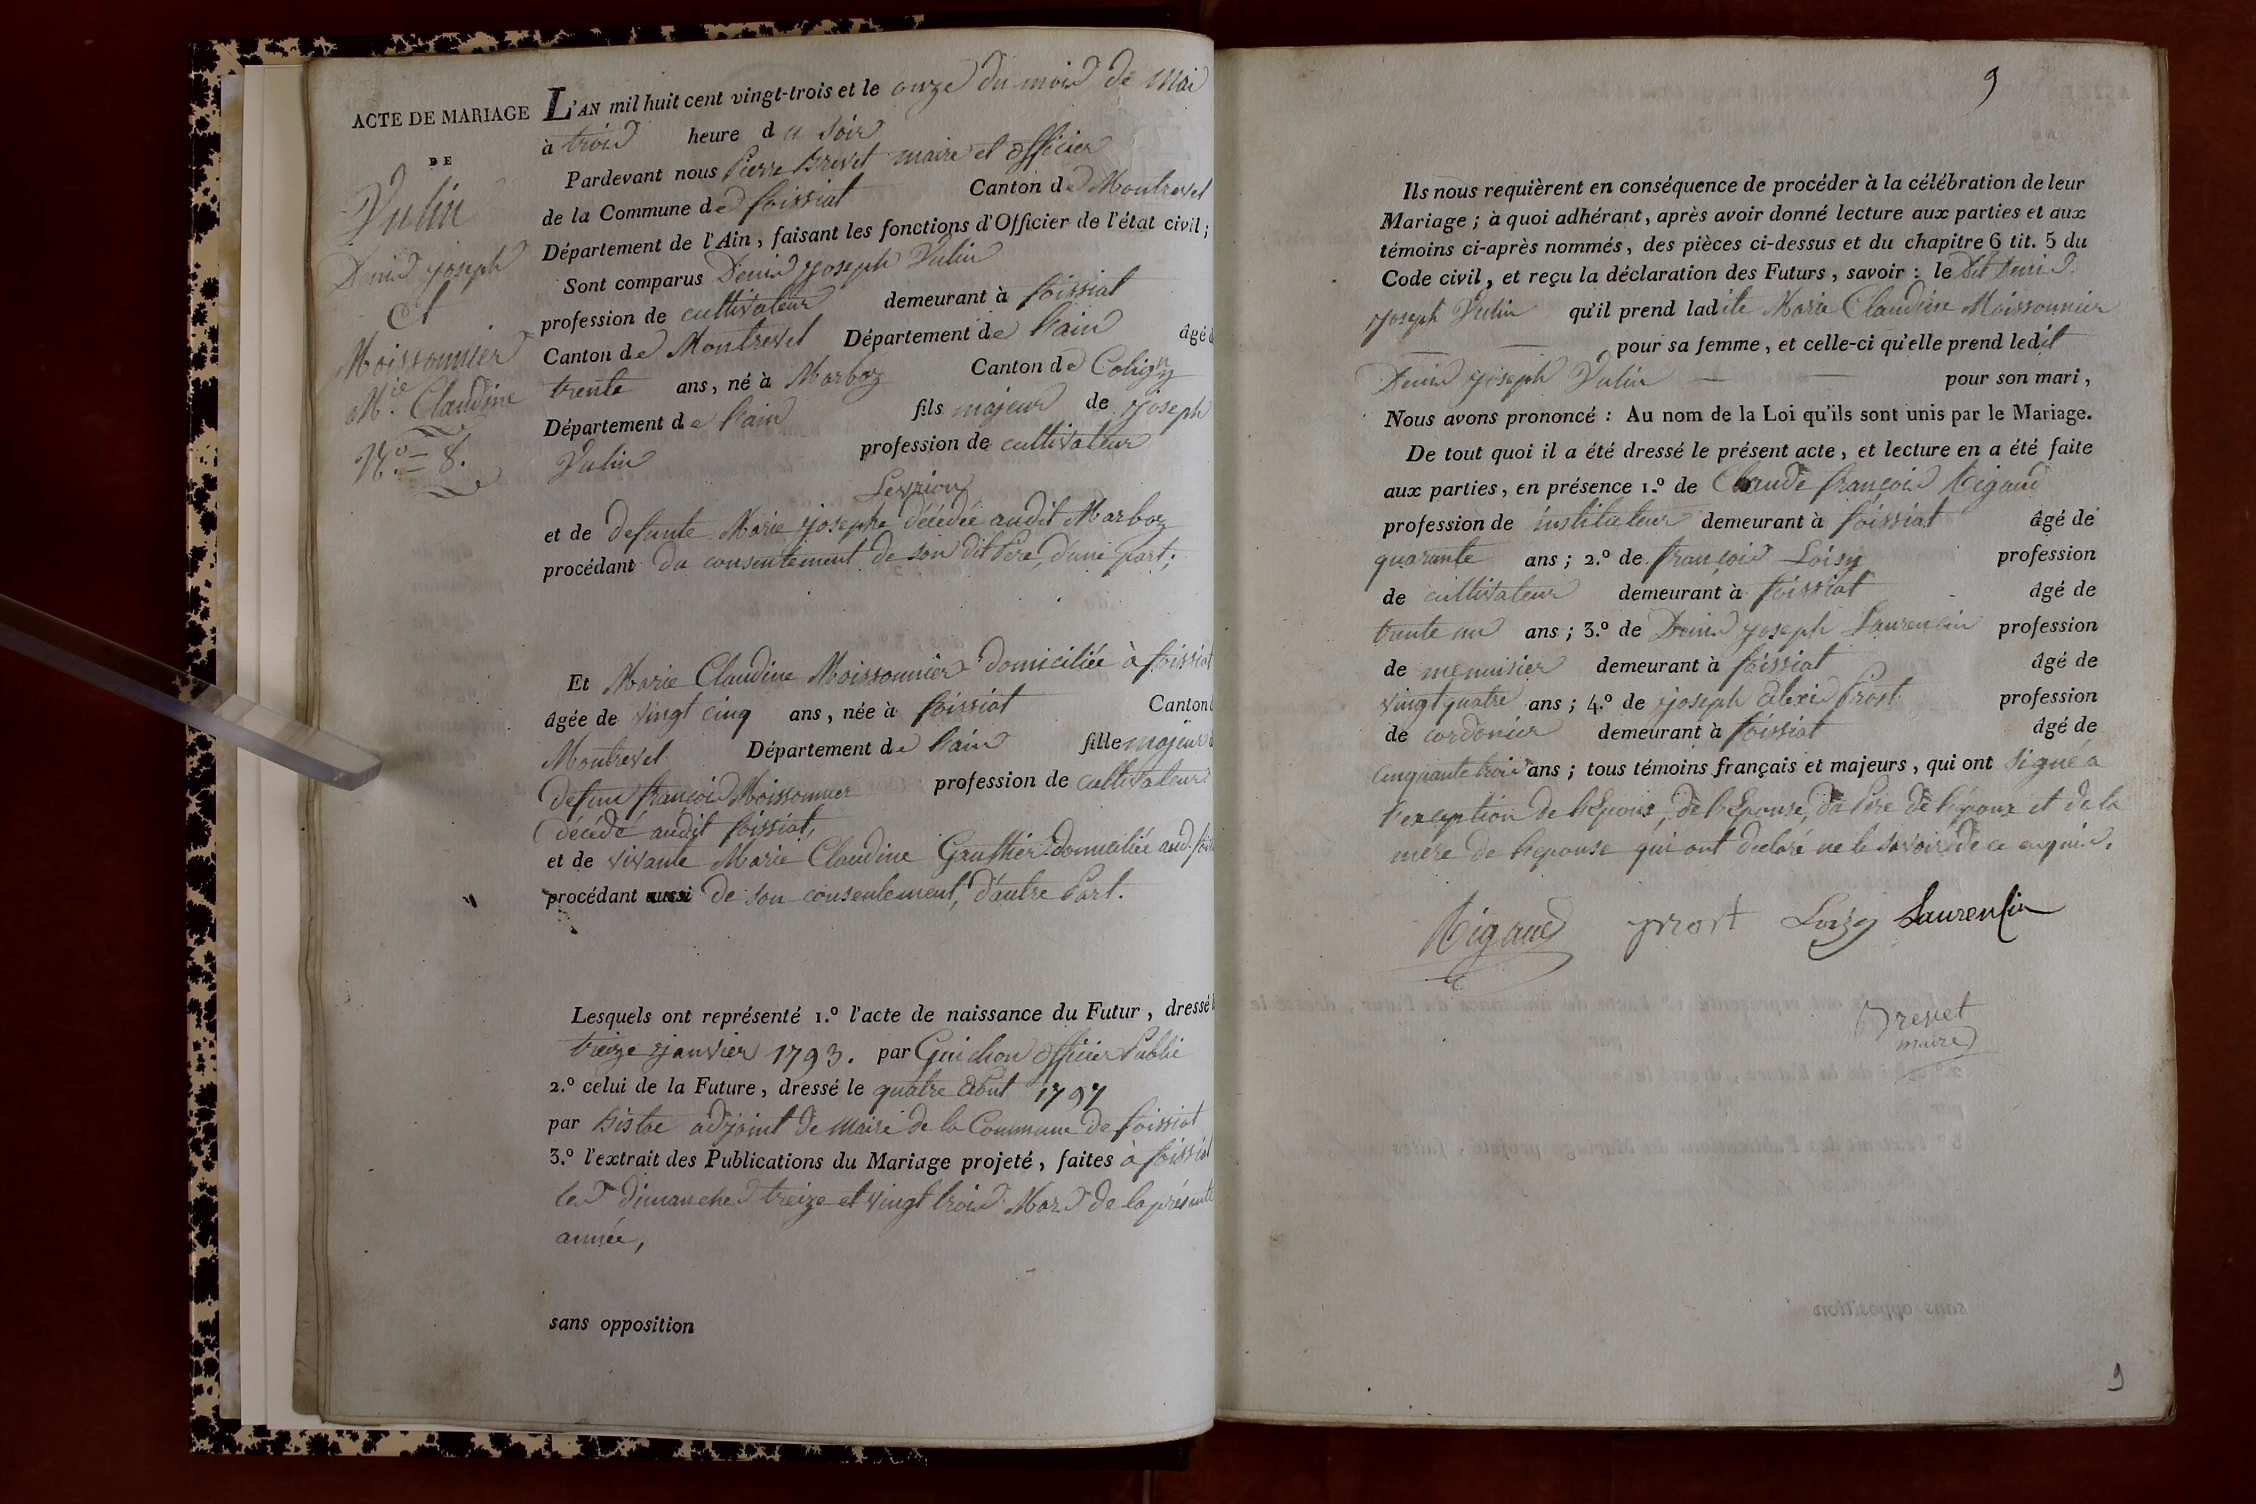 ACTE DE MARIAGE
DE
Vulin
Denis joseph
et
Moissonnier
M.ie Claudine
N.o 8.
L'AN mil huit cent vingt-trois et le onze du mois de Mai
à trois heure du soir
Pardevant nous Pierre Brevet maire et officier
de la Commune de foissiat Canton de Montrevel
Département de l'Ain, faisant les fonctions d'Officier de l'état civil;
Sont comparus Denis joseph Vulin
profession de cultivateur demeurant à foissiat
Canton de Montrevel Département de l'ain âgé d
trente ans, né à Marboz Canton de Coligny
Département de l'ain fils majeur de joseph
Vulin profession de cultivateur
Levrion
et de defunte Marie josephe décédée audit Marboz
procédant du consentement de son dit Père, d'une part;
Et Marie Claudine Moissonnier domiciliée à foissiat
âgée de vingt cinq ans, née à foissiat Canton
Montrevel Département de l'ain fille majeure
defun françois Moissonnier profession de cultivateur
décédé audit foissiat,
et de vivante Marie Claudine Gauthier domiciliée aud. foiss
procédant aussi de son consentement, d'autre Part.
Lesquels ont représenté 1.º l'acte de naissance du Futur, dressé l
treize janvier 1793. par Guichon officier Public
2.º celui de la Future, dressé le quatre aout 1797
par adjoint de Maire de la Commune de foissiat
3.º l'extrait des Publications du Mariage projeté, faites à foissiat
les dimanches treize et vingt trois Mars de la présente
année,
sans opposition
9
Ils nous requièrent en conséquence de procéder à la célébration de leur
Mariage; à quoi adhérant, après avoir donné lecture aux parties et aux
témoins ci-après nommés, des pièces ci-dessus et du chapitre 6 tit. 5 du
Code civil, et reçu la déclaration des Futurs, savoir: le dit Denis
joseph Vulin qu'il prend ladite Marie Claudine Moissonnier
pour sa femme, et celle-ci qu'elle prend ledit
Denis joseph Vulin pour son mari,
Nous avons prononcé: Au nom de la Loi qu'ils sont unis par le Mariage.
De tout quoi il a été dressé le présent acte, et lecture en a été faite
aux parties, en présence 1.º de Claude françois Rigaud
profession de instituteur demeurant à foissiat âgé de
quarante ans; 2.º de françois Loisy profession
de cultivateur demeurant à foissiat âgé de
trente un ans; 3.º de Denis joseph Laurencin profession
de menuisier demeurant à foissiat âgé de
vingt quatre ans; 4.º de joseph alexis Prost profession
de cordonier demeurant à foissiat âgé de
cinquante trois ans; tous témoins français et majeurs, qui ont signé a
l'exception de l'Epoux, de l'Epouse, du Père de l'époux et de la
mere de l'epouse qui ont declaré ne le savoir de ce enquis.
Rigaud prost Loizy Laurensin
Brevet
maire
9